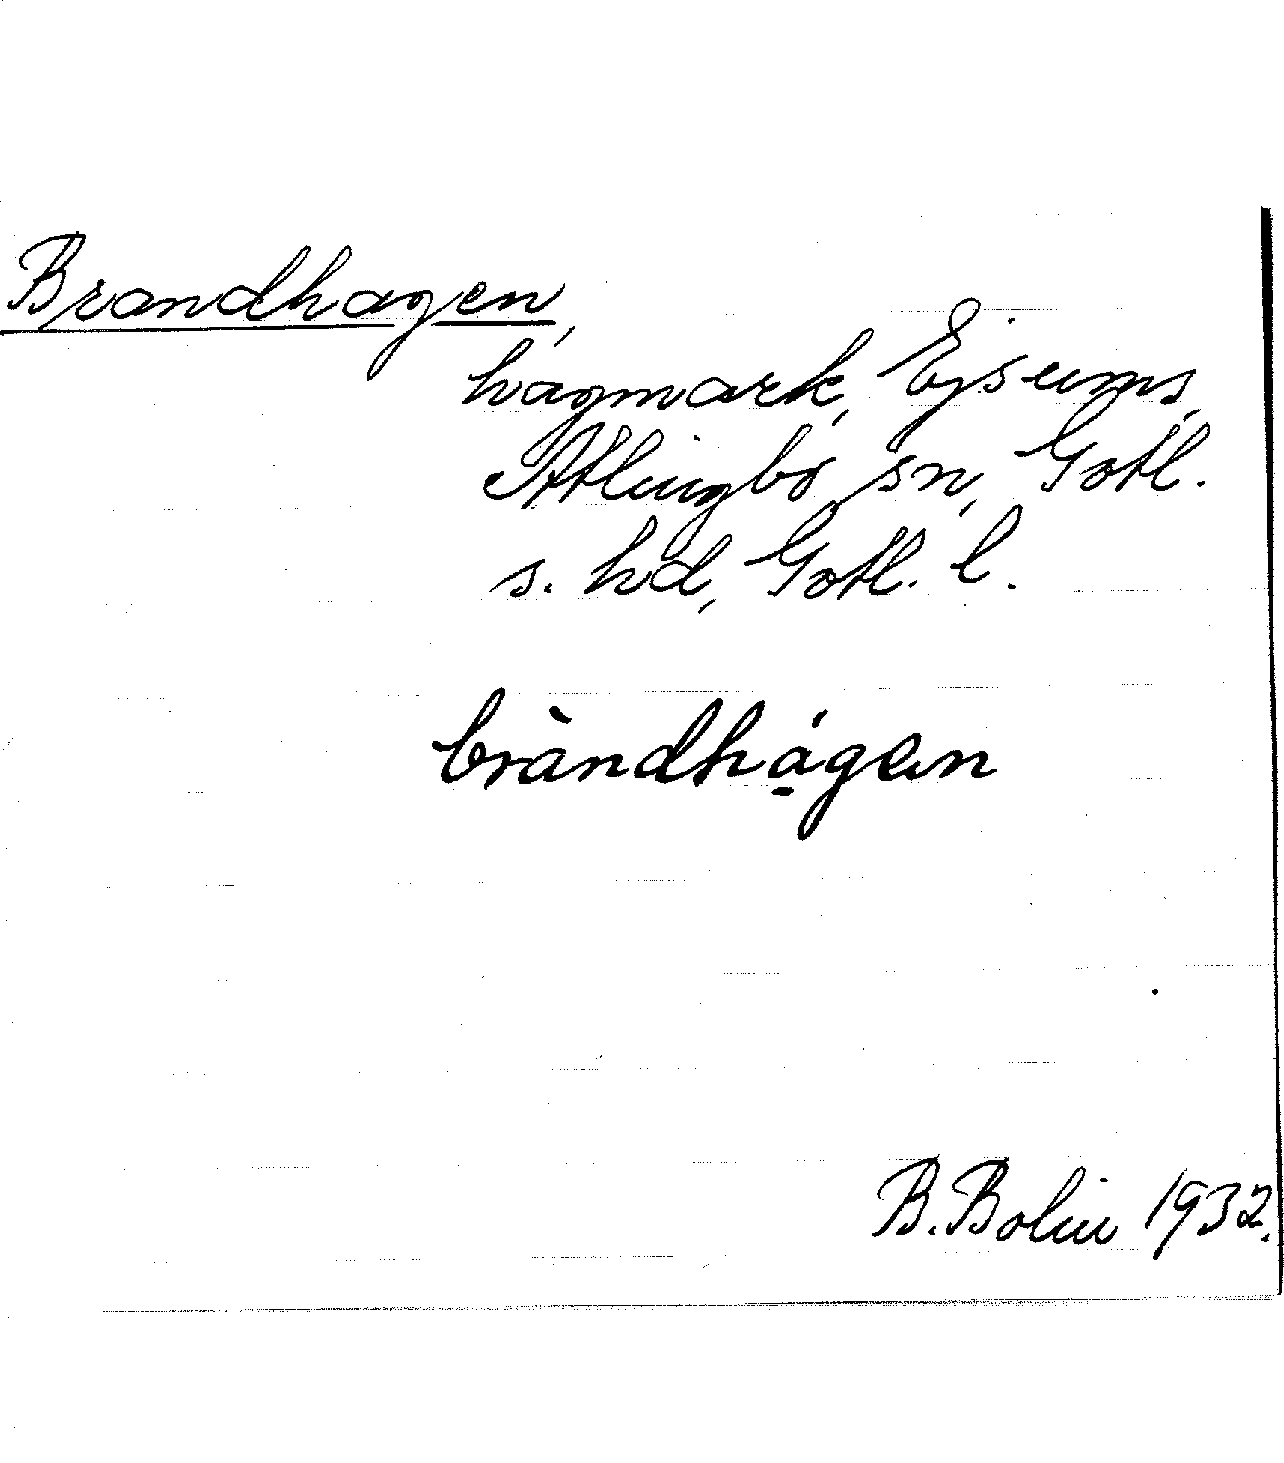 Brandhagen,
hagmark, Ejsums,
Atlingbo sn, Gotl.
s. hd, Gotl. l.
bràndhá̱gan
B. Bolin 1932.